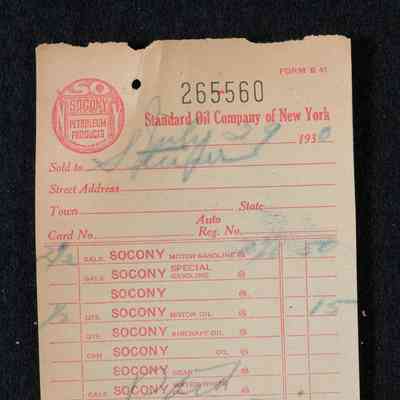 FORM B 41
SO
SOCONY
PETROLEUM
PRODUCTS
265560
Standard Oil Company of New York
July 29 1930
Sold to
Street Address
Town State
Auto
Card No. Reg. No.
GALS. SOCONY MOTOR GASOLINE @ 50
GALS. SOCONY SPECIAL GASOLINE @
SOCONY @
QTS. SOCONY MOTOR OIL @ 15
QTS. SOCONY AIRCRAFT OIL @
CAN SOCONY OIL @
SOCONY GEAR @
SOCONY